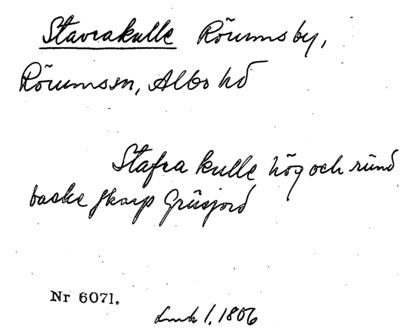 Stavrakulle Rörumsby,
Rörums sn, Albo hd
Stafra kulle hög och ründ
backe skarp Grüsjord
Nr 6071.
1, 1806